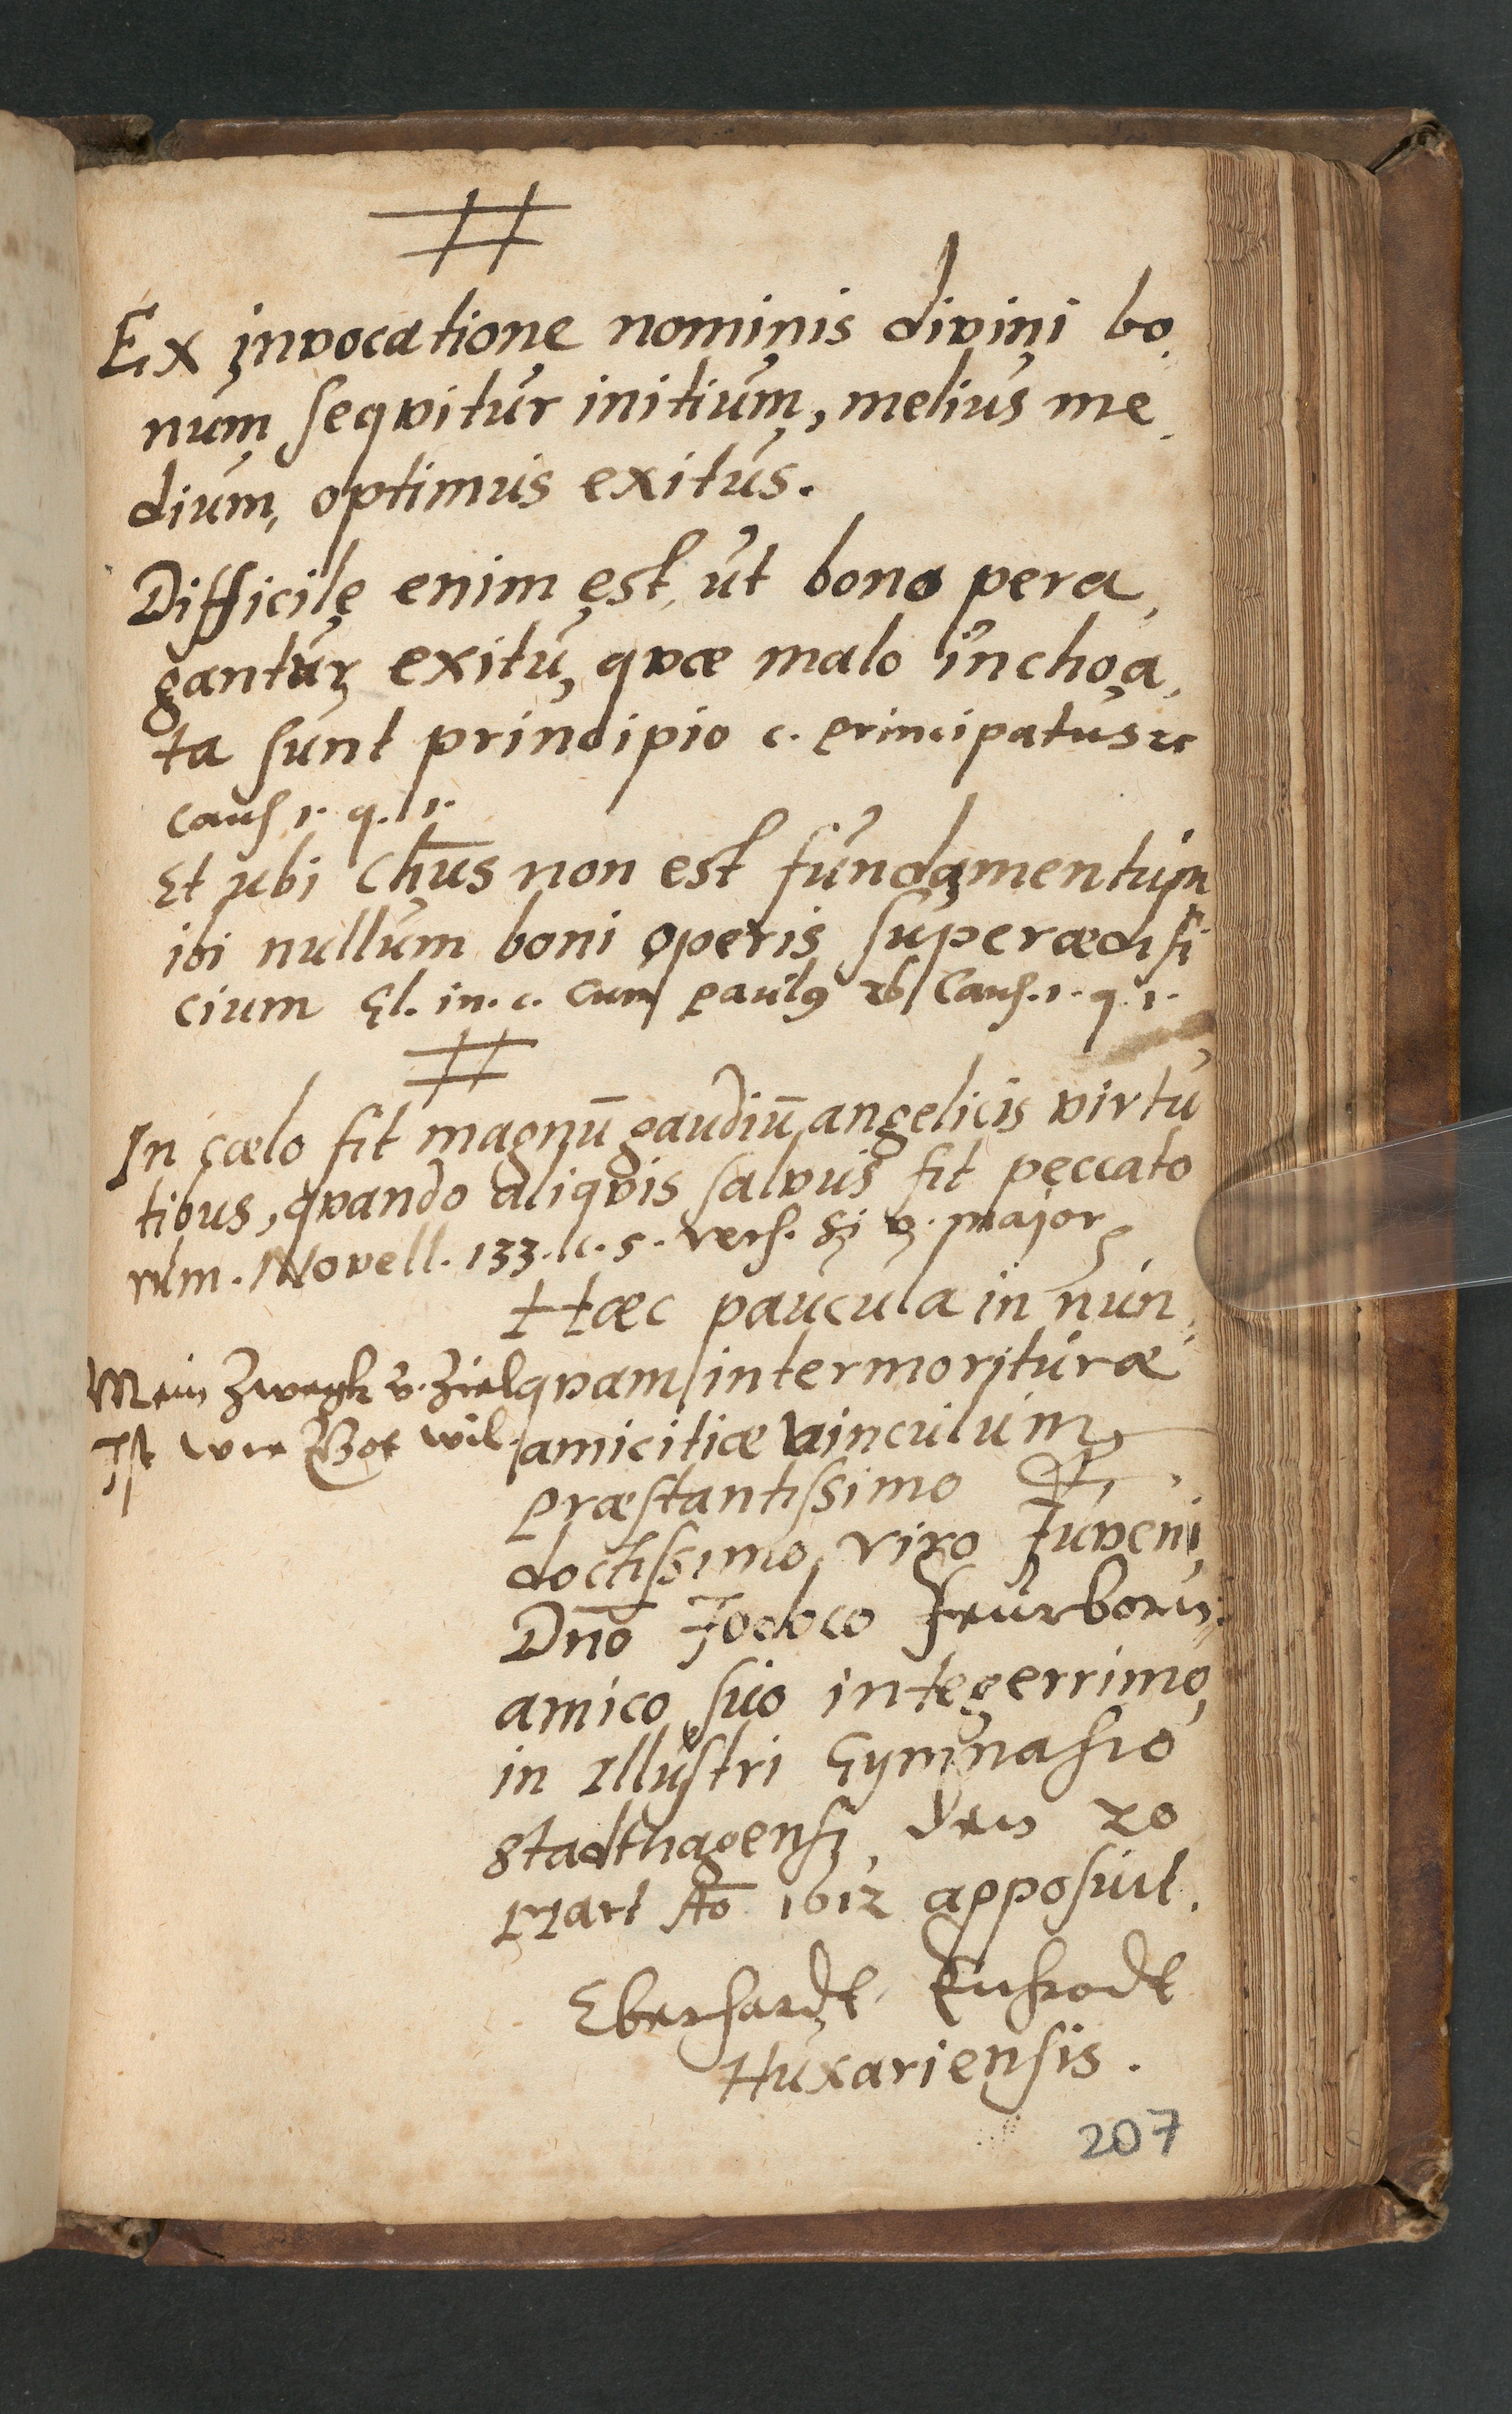 Ex invocatione nominis divini bo
num seqvitur initium, melius me
dium, optimus exitus.
Difficile enim est, ut bono pera,
gantur exitu, qvæ malo inchoa,
ta sunt principio c. principatus ꝛc
Caus 1. q. 1.
Et ubi Chūs non est fundamentum
ibi nullum boni operis superædifi
cium Gl. in. c. Cum Paulꝯ 26 Caus. 1. q. 1.
In cælo fit magnū gaudiū angelicis virtu
tibus, qvando aliqvis salvus fit peccato
rum. Novell. 133. c. 5. vers. Si v. major
Hæc paucula in nun,
qvam intermorituræ
amicitiæ vinculum
Mein Zwegk v. Ziel
Ist wie Got wil.
præstantissimo &
doctissimo viro Juveni
Dno Jodoco Feurborn
amico suo integerrimo,
in Illustri Gymnasio
Stadthagensi, den 20
Mart Aō 1612 apposuit.
Eberhardt
Huxariensis.
207